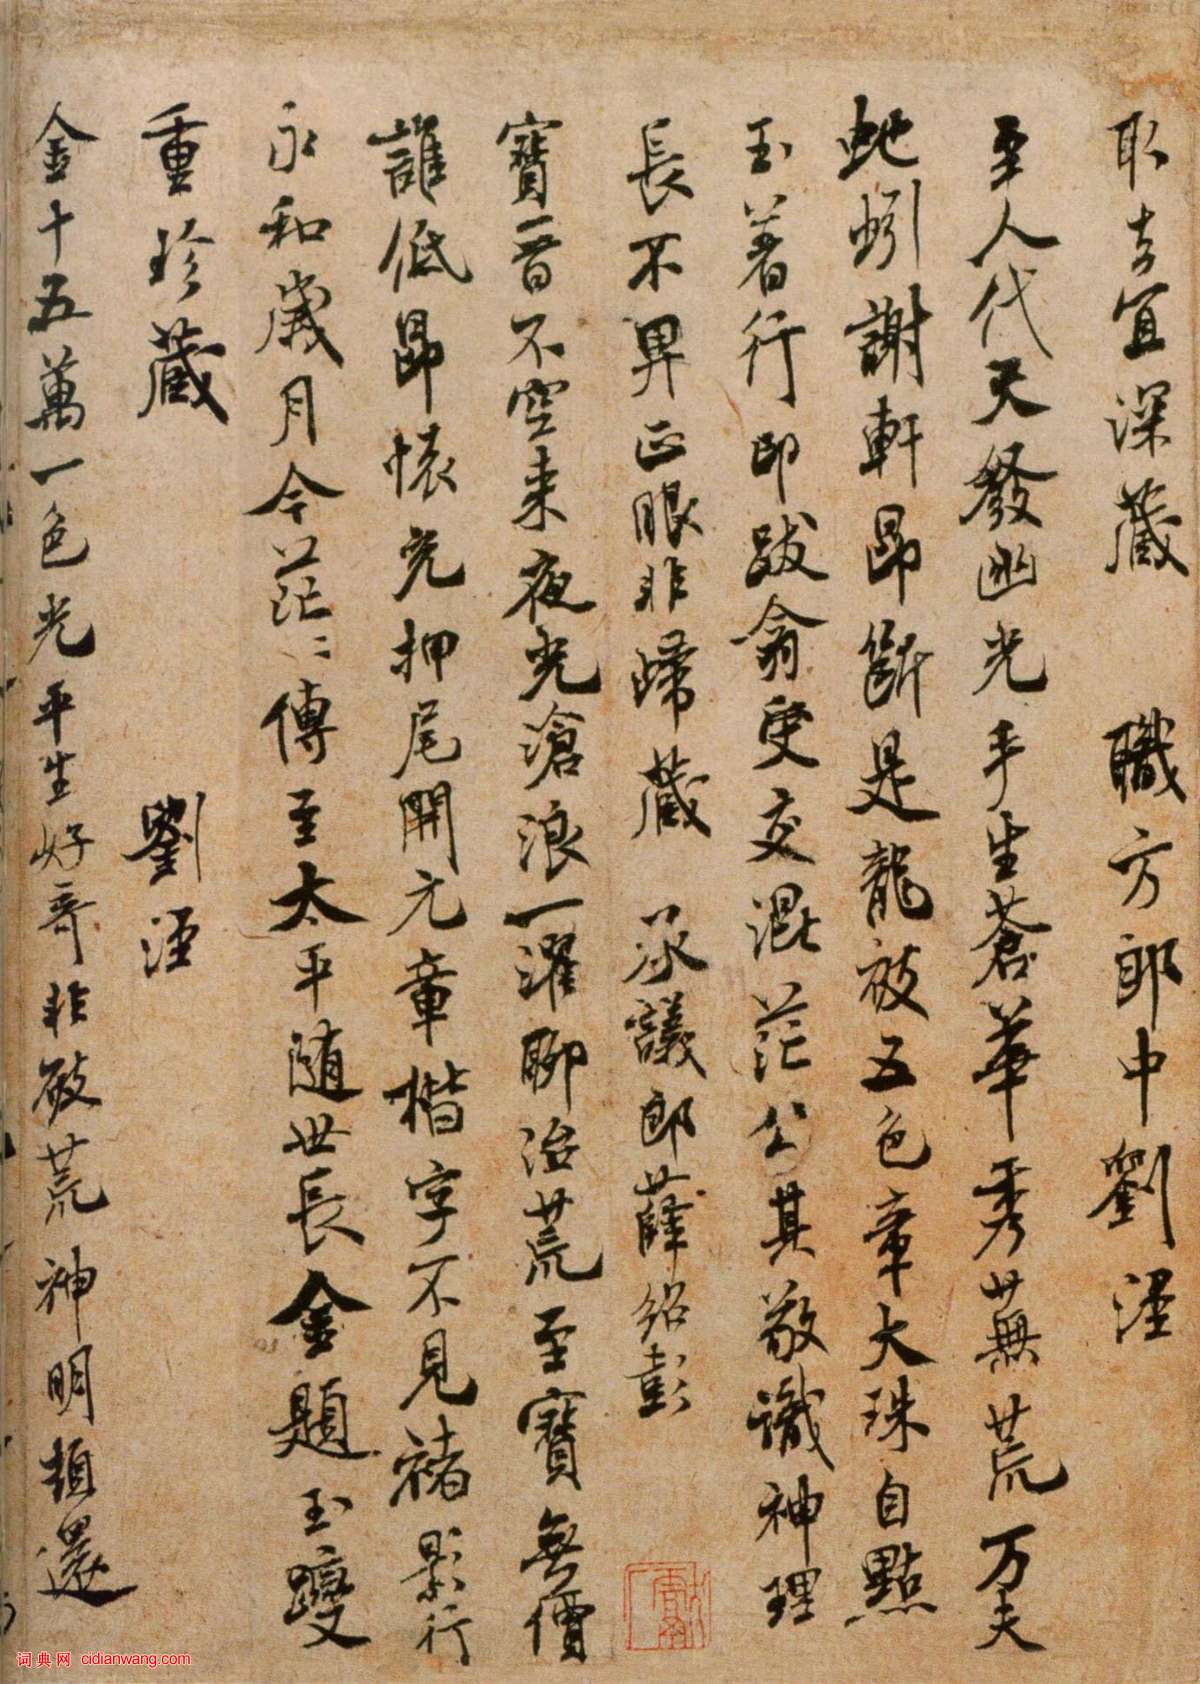 取去宜深藏　職方郎中劉涇
至人代天發幽光手生蒼華秀蕪荒万夫
虵蚓謝軒昂斷是龍被五色章大珠自點
玉著行印跋翕受交混茫公其敬識神理
長不畀正眼非歸藏　承議郎薛紹彭
寶晋不空来夜光滄浪一濯聊治荒至寶無價
誰低昂懷充押尾開元章楷字不見褚影行
永和歲月今茫〻傳至太平随世長金題玉躞
重珍藏　劉涇
金十五萬一色光平生好奇非破荒神明頓還
词典网 cidianwang.com